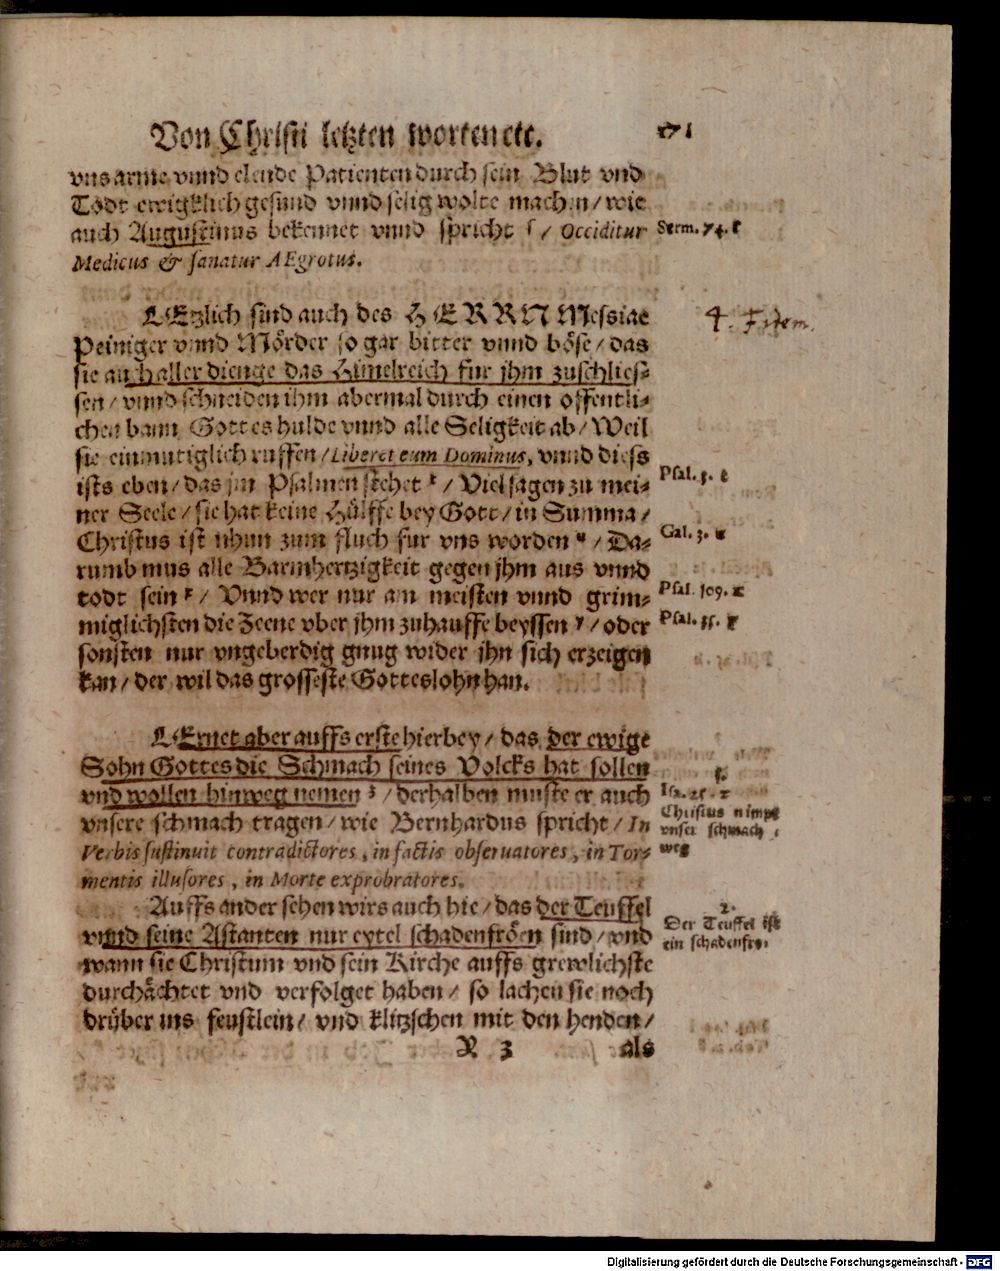 Von Christi letzten worten etc. 171
vns arme vnnd elende Patienten durch sein Blut vnd
Todt ewigklich gesund vnnd selig wolte machen / wie
auch Augustinus bekennet vnnd spricht ſ / Occiditur
Serm. 74. ſ
Medicus & sanatur AEgrotus.
LEtzlich sind auch des HERRN Messiae
4. Item.
Peiniger vnnd Mörder so gar bitter vnnd böse / das
sie auch aller dienge das Himelreich für jhm zuschlies-
sen / vnnd schneiden ihm abermal durch einen offentli-
chen bann Gottes hulde vnnd alle Seligkeit ab / Weil
sie einmütiglich ruffen / Liberet eum Dominus, vnnd diess
ists eben / das jm Psalmen stehet t / Viel sagen zu mei-
Psal. 3. t
ner Seele / sie hat keine Hülffe bey Gott / in Summa /
Christus ist nhun zum fluch für vns worden u / Da-
Gal. 3. u
rumb mus alle Barmhertzigkeit gegen jhm aus vnnd
todt sein x / Vnnd wer nur am meisten vnnd grim-
Psal. 109. x
miglichsten die Zeene vber jhm zuhauffe beyssen y / oder
Psal. 35. y
sonsten nur vngeberdig gnug wider jhn sich erzeigen
kan / der wil das grosseste Gotteslohn han.
LErnet aber auffs erste hierbey / das der ewige
Sohn Gottes die Schmach seines Volcks hat sollen
vnd wollen hinweg nemen z / derhalben muste er auch
Isa. 25. z
Christus nimpt
vnsere schmach tragen / wie Bernhardus spricht / In
vnser schmach
Verbis sustinuit contradictores, in factis obseruatores, in Tor-
weg
mentis illusores, in Morte exprobratores.
Auffs ander sehen wirs auch hie / das der Teuffel
2.
Der Teuffel ist
vnnd seine Astanten nur eytel schadenfröen sind / vnd
ein schadenfro.
wann sie Christum vnd sein Kirche auffs grewlichste
durchächtet vnd verfolget haben / so lachen sie noch
drüber ins feustlein / vnd klitzschen mit den henden /
R 3 als
Digitalisierung gefördert durch die Deutsche Forschungsgemeinschaft - DFG